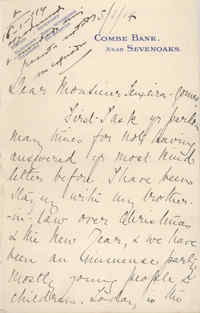 5/1/14
COMBE BANK,
NEAR SEVENOAKS.
Dear Monsieur Teixeira-Gomes
First I ask yr pardon
many times for not having
answered yr most kind
letter before. I have been
staying with my brother
-in-law over Christmas
& the New Year, & we have
been an immense party
mostly young people &
children. Today, is the